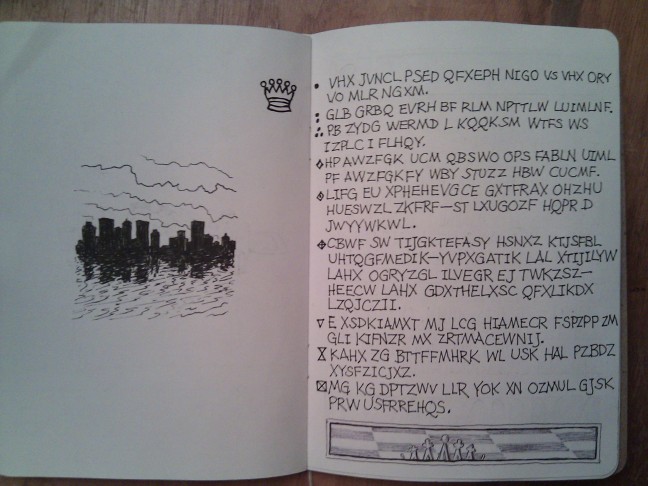 VHX JVNCL PSED QFXEPH NIGO VS VHX ORY
VO MLR NGXM.
GLB GRBQ EVRH BF RLM NPTTLW LUIMLNF.
PB ZYDG WERMD L KQQKSM WTFS WS
IZPLC I FLHQY.
HP AWZFGK UCM QBSWO OPS FABLN UIML
PF AWZFGKFY WBY STUZZ HBW CUCMF.
LIFG EU XPHEHEVGCE GXTFRAX OHZHU
HUESWZL ZKFRF-ST LXUGOZF HQPR D
JWYYWKWL.
CBWF SW TIJGKTEFASY HSNXZ KTJSFBL
UHTQGFMEDIK-YVPXGATIK LAL XTIJILYW
LAHX OGRYZGL ILVEGR EJ TWKZSZ-
HEECW LAHX GDXTHELXSC QFXLIKDX
LZQJCZII.
E XSDKIAMXT MJ LCG HIAMECR FSPZPP ZM
GLI KIFNZR MX ZRTMACEWNIJ.
KAHX ZG BTTFFMHRK WL USK HAL PZBDZ
XYSFZICJXZ.
MG KG DPTZWV LLR YOK XN OZMUL GJSK
PRW USFRREHQS.